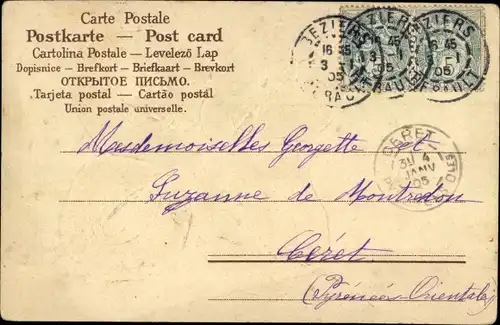 Carte Postale
Postkarte — Post card
Cartolina Postale – Levelező Lap
Dopisnice – Brefkort – Briefkaart – Brevkort
ОТКРЫТОЕ ПИСЬМО.
Tarjeta postal – Cartão postál
Union postale universelle.
BEZIERS
16 45
3 1
05
HERAULT
BEZIERS
45
05
HERAULT
BEZIERS
16 45
1
05
HERAULT
CERET
4
JANV
05
Mesdemoiselles Georgette et
Suzanne de Montredon
Céret
(Pyrénées Orientales)